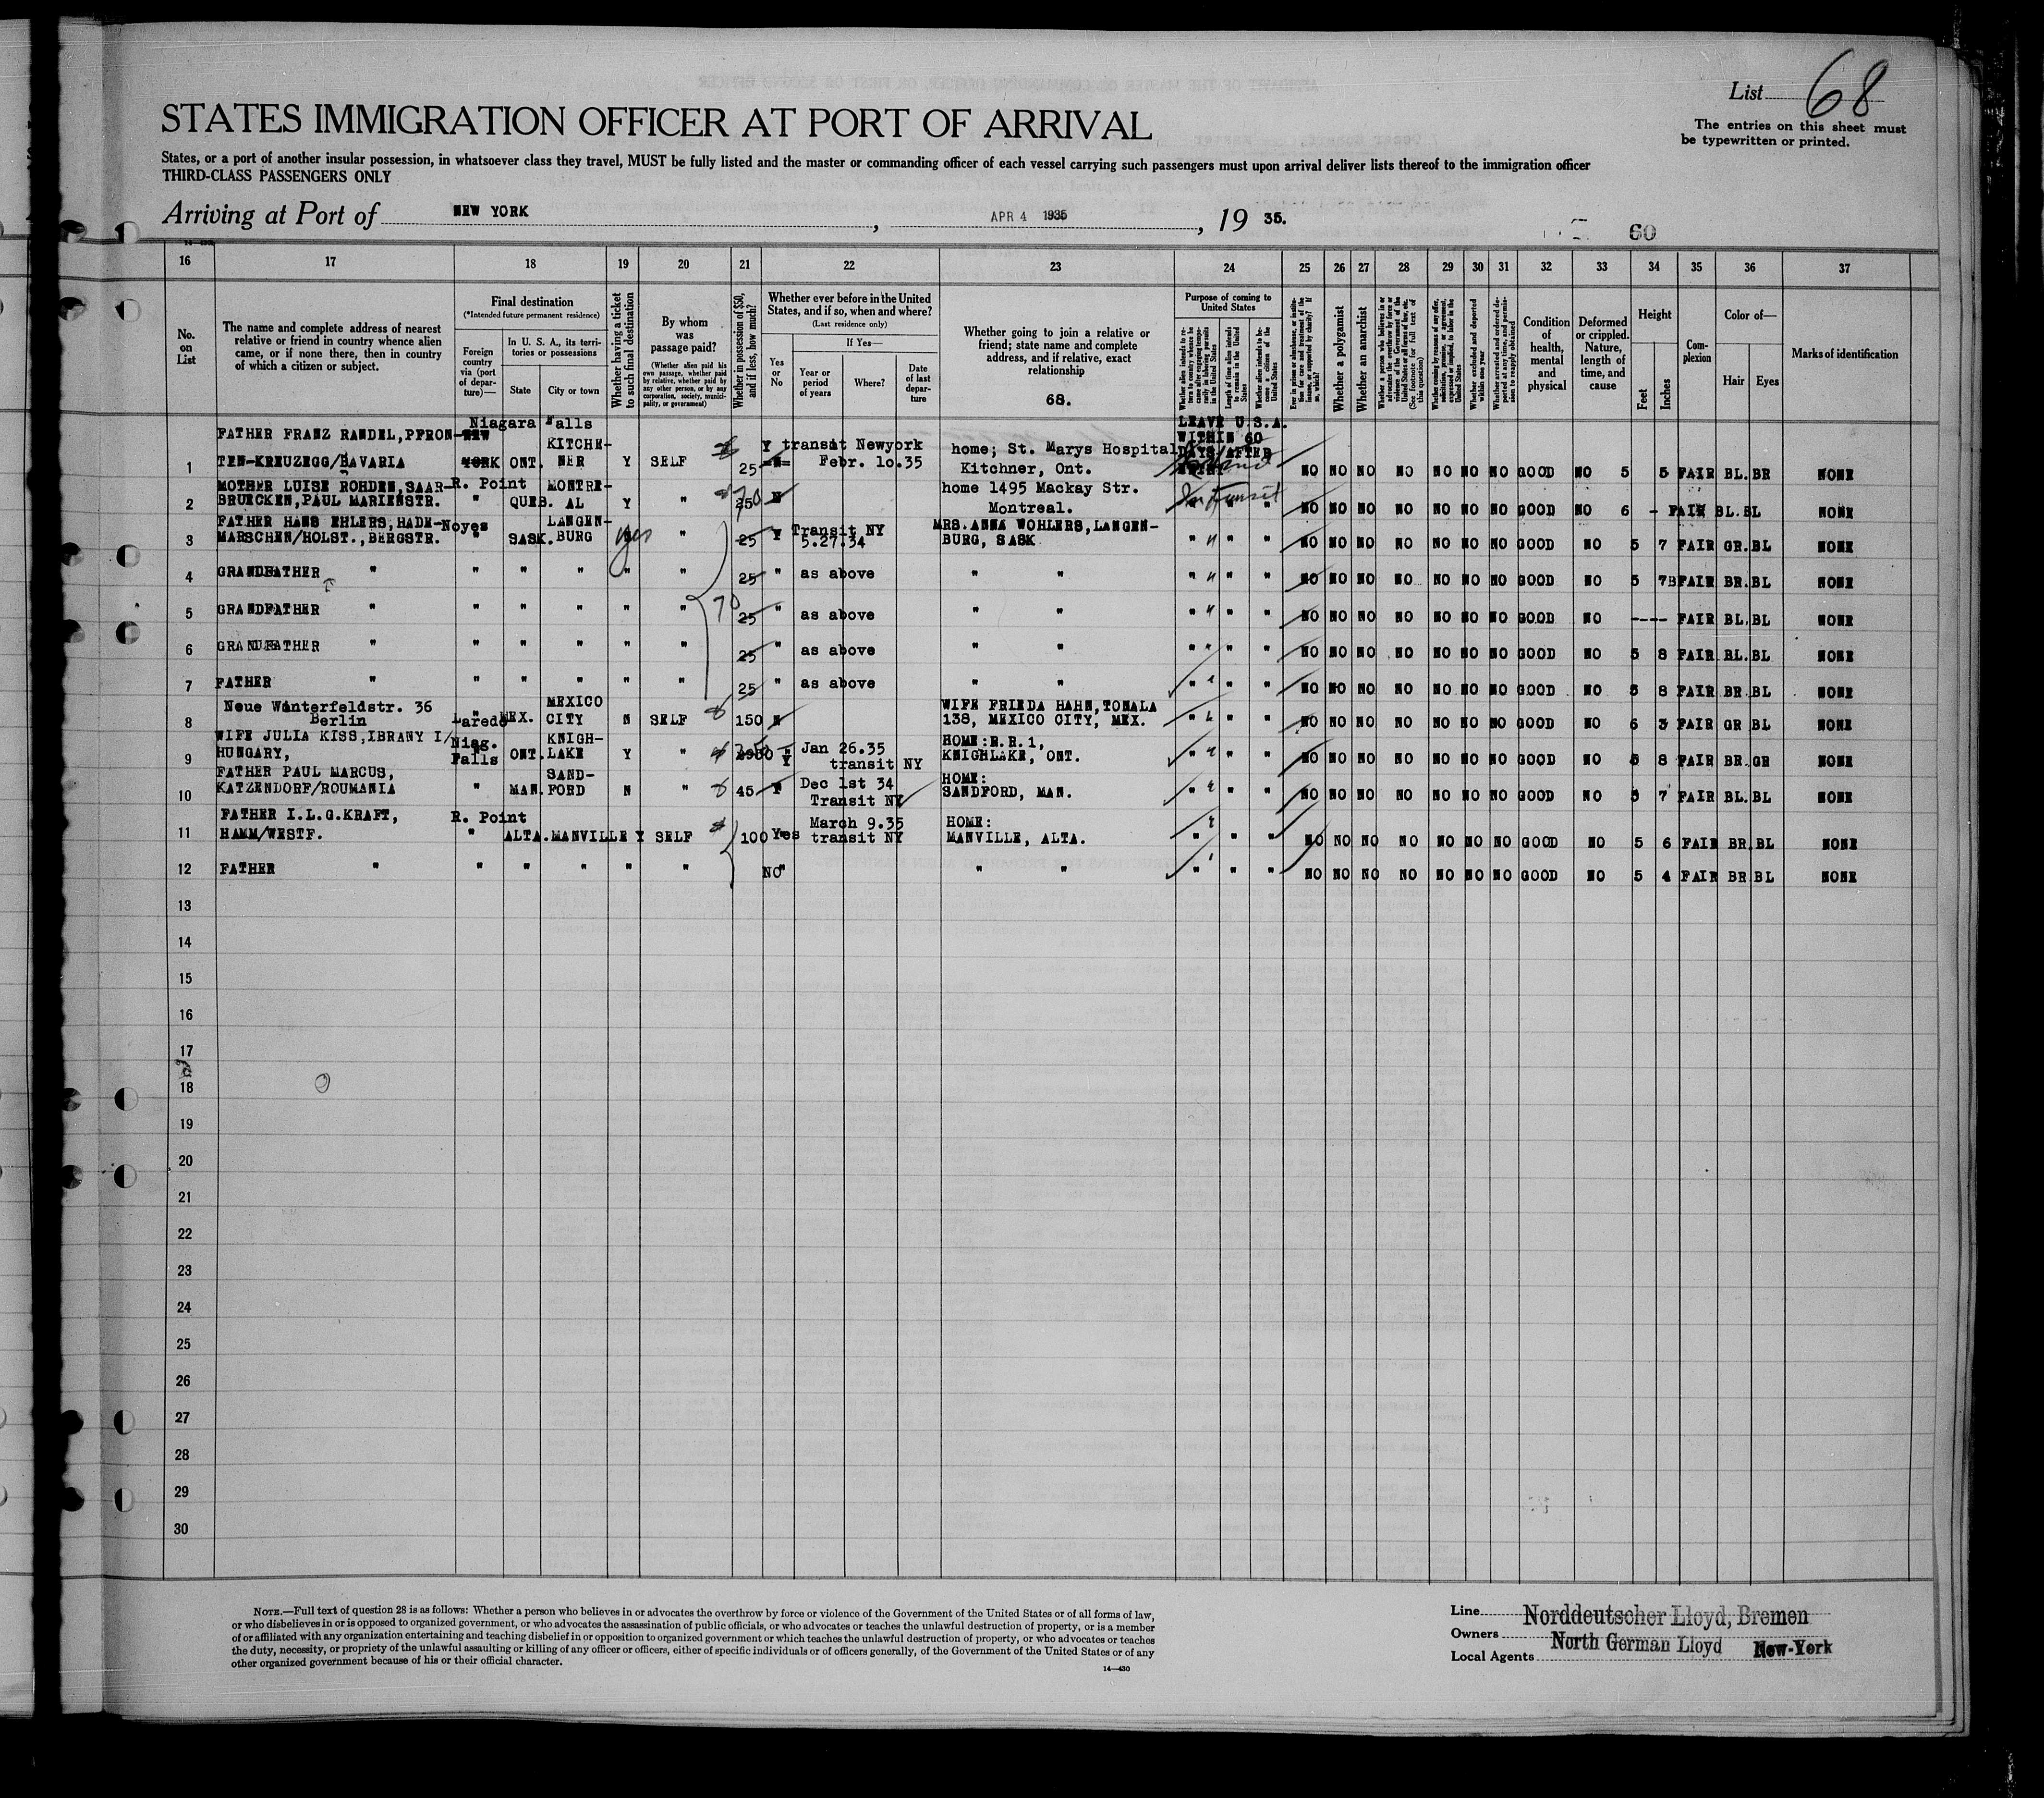 List 68
The entries on this sheet must
be typewritten or printed.
STATES IMMIGRATION OFFICER AT PORT OF ARRIVAL
States, or a port of another insular possession, in whatsoever class they travel, MUST be fully listed and the master or commanding officer of each vessel carrying such passengers must upon arrival deliver lists thereof to the immigration officer
THIRD-CLASS PASSENGERS ONLY
Arriving at Port of NEW YORK, APR 4 1935, 19 35.
60
16 17 18 19 20 21 22 23 24 25 26 27 28 29 30 31 32 33 34 35 36 37
No. on List
The name and complete address of nearest relative or friend in country whence alien came, or if none there, then in country of which a citizen or subject.
Final destination
(*Intended future permanent residence)
Foreign country via (port of departure)—
In U. S. A., its territories or possessions
State
City or town
Whether having a ticket to such final destination
By whom was passage paid?
(Whether alien paid his own passage, whether paid by relative, whether paid by any other person, or by any corporation, society, municipality, or government)
Whether in possession of $50, and if less, how much?
Whether ever before in the United States, and if so, when and where?
(Last residence only)
Yes or No
If Yes—
Year or period of years
Where?
Date of last departure
Whether going to join a relative or friend; state name and complete address, and if relative, exact relationship
68.
Purpose of coming to United States
Length of time alien intends to remain in the United States
Whether alien intends to become a citizen of the United States
Whether a polygamist
Whether an anarchist
Condition of health, mental and physical
Deformed or crippled. Nature, length of time, and cause
Height
Feet
Inches
Complexion
Color of—
Hair
Eyes
Marks of identification
Niagara Falls LEAVE U.S.A.
FATHER FRANZ RANDEL, PFRON- NEW KITCHE- Y transit Newyork home; St. Marys Hospital WITHIN 60 DAYS AFTER
1 TEN-KREUZEGG/BAVARIA YORK ONT. NER Y SELF 25 N Febr. 10.35 Kitchner, Ont. NO NO NO NO NO NO NO GOOD NO 5 5 FAIR BL. BR NONE
MOTHER LUISE ROHDEN, SAAR- R. Point MONTRE- home 1495 Mackay Str.
2 BRUECKEN, PAUL MARIENSTR. " QUEB. AL Y " 250 N Montreal. In transit NO NO NO NO NO NO NO GOOD NO 6 - FAIR BL. BL NONE
FATHER HANS EHLERS, HADE- Noyes LANGEN- Transit NY MRS. ANNA WOHLERS, LANGEN-
3 MARSCHEN/HOLST., BERGSTR. " SASK. BURG yes " 25 Y 5.27.34 BURG, SASK " " " " NO NO NO NO NO NO NO GOOD NO 5 7 FAIR GR. BL NONE
4 GRANDFATHER " " " " " " 25 " as above " " " " " " NO NO NO NO NO NO NO GOOD NO 5 7 FAIR BR. BL NONE
5 GRANDFATHER " " " " " " 70 25 " as above " " " " " " NO NO NO NO NO NO NO GOOD NO ---- FAIR BL. BL NONE
6 GRANDFATHER " " " " " " 25 " as above " " " " " " NO NO NO NO NO NO NO GOOD NO 5 8 FAIR BL. BL NONE
7 FATHER " " " " " " 25 " as above " " " " " " NO NO NO NO NO NO NO GOOD NO 5 8 FAIR BR. BL NONE
Neue Winterfeldstr. 36 " MEXICO WIFE FRIEDA HAHN, TONALA
8 Berlin Laredo MEX. CITY N SELF 150 N 138, MEXICO CITY, MEX. " " " NO NO NO NO NO NO NO GOOD NO 6 3 FAIR GR BL NONE
WIFE JULIA KISS, IBRANY I/ Niag. KNIGH- HOME: R.R.1,
9 HUNGARY, Falls ONT. LAKE Y " Y Jan 26.35 transit NY KNIGHLAKE, ONT. " " " " NO NO NO NO NO NO NO GOOD NO 5 8 FAIR BR. GR NONE
FATHER PAUL MARCUS, SAND- Dec 1st 34 HOME:
10 KATZENDORF/ROUMANIA " MAN. FORD N " 45 Y Transit NY SANDFORD, MAN. " " " " NO NO NO NO NO NO NO GOOD NO 5 7 FAIR BL. BL NONE
FATHER I.L.G.KRAFT, R. Point March 9.35 HOME:
11 HAMM/WESTF. " ALTA. MANVILLE Y SELF 100 Yes transit NY MANVILLE, ALTA. " " " NO NO NO NO NO NO NO GOOD NO 5 6 FAIR BR. BL NONE
12 FATHER " " " " " " NO " " " " " NO NO NO NO NO NO NO GOOD NO 5 4 FAIR BR BL NONE
13
14
15
16
17
18
19
20
21
22
23
24
25
26
27
28
29
30
NOTE.—Full text of question 28 is as follows: Whether a person who believes in or advocates the overthrow by force or violence of the Government of the United States or of all forms of law,
or who disbelieves in or is opposed to organized government, or who advocates the assassination of public officials, or who advocates or teaches the unlawful destruction of property, or is a member
of or affiliated with any organization entertaining and teaching disbelief in or opposition to organized government or which teaches the unlawful destruction of property, or who advocates or teaches
the duty, necessity, or propriety of the unlawful assaulting or killing of any officer or officers, either of specific individuals or of officers generally, of the Government of the United States or of any
other organized government because of his or their official character.
14—430
Line Norddeutscher Lloyd, Bremen
Owners North German Lloyd New-York
Local Agents